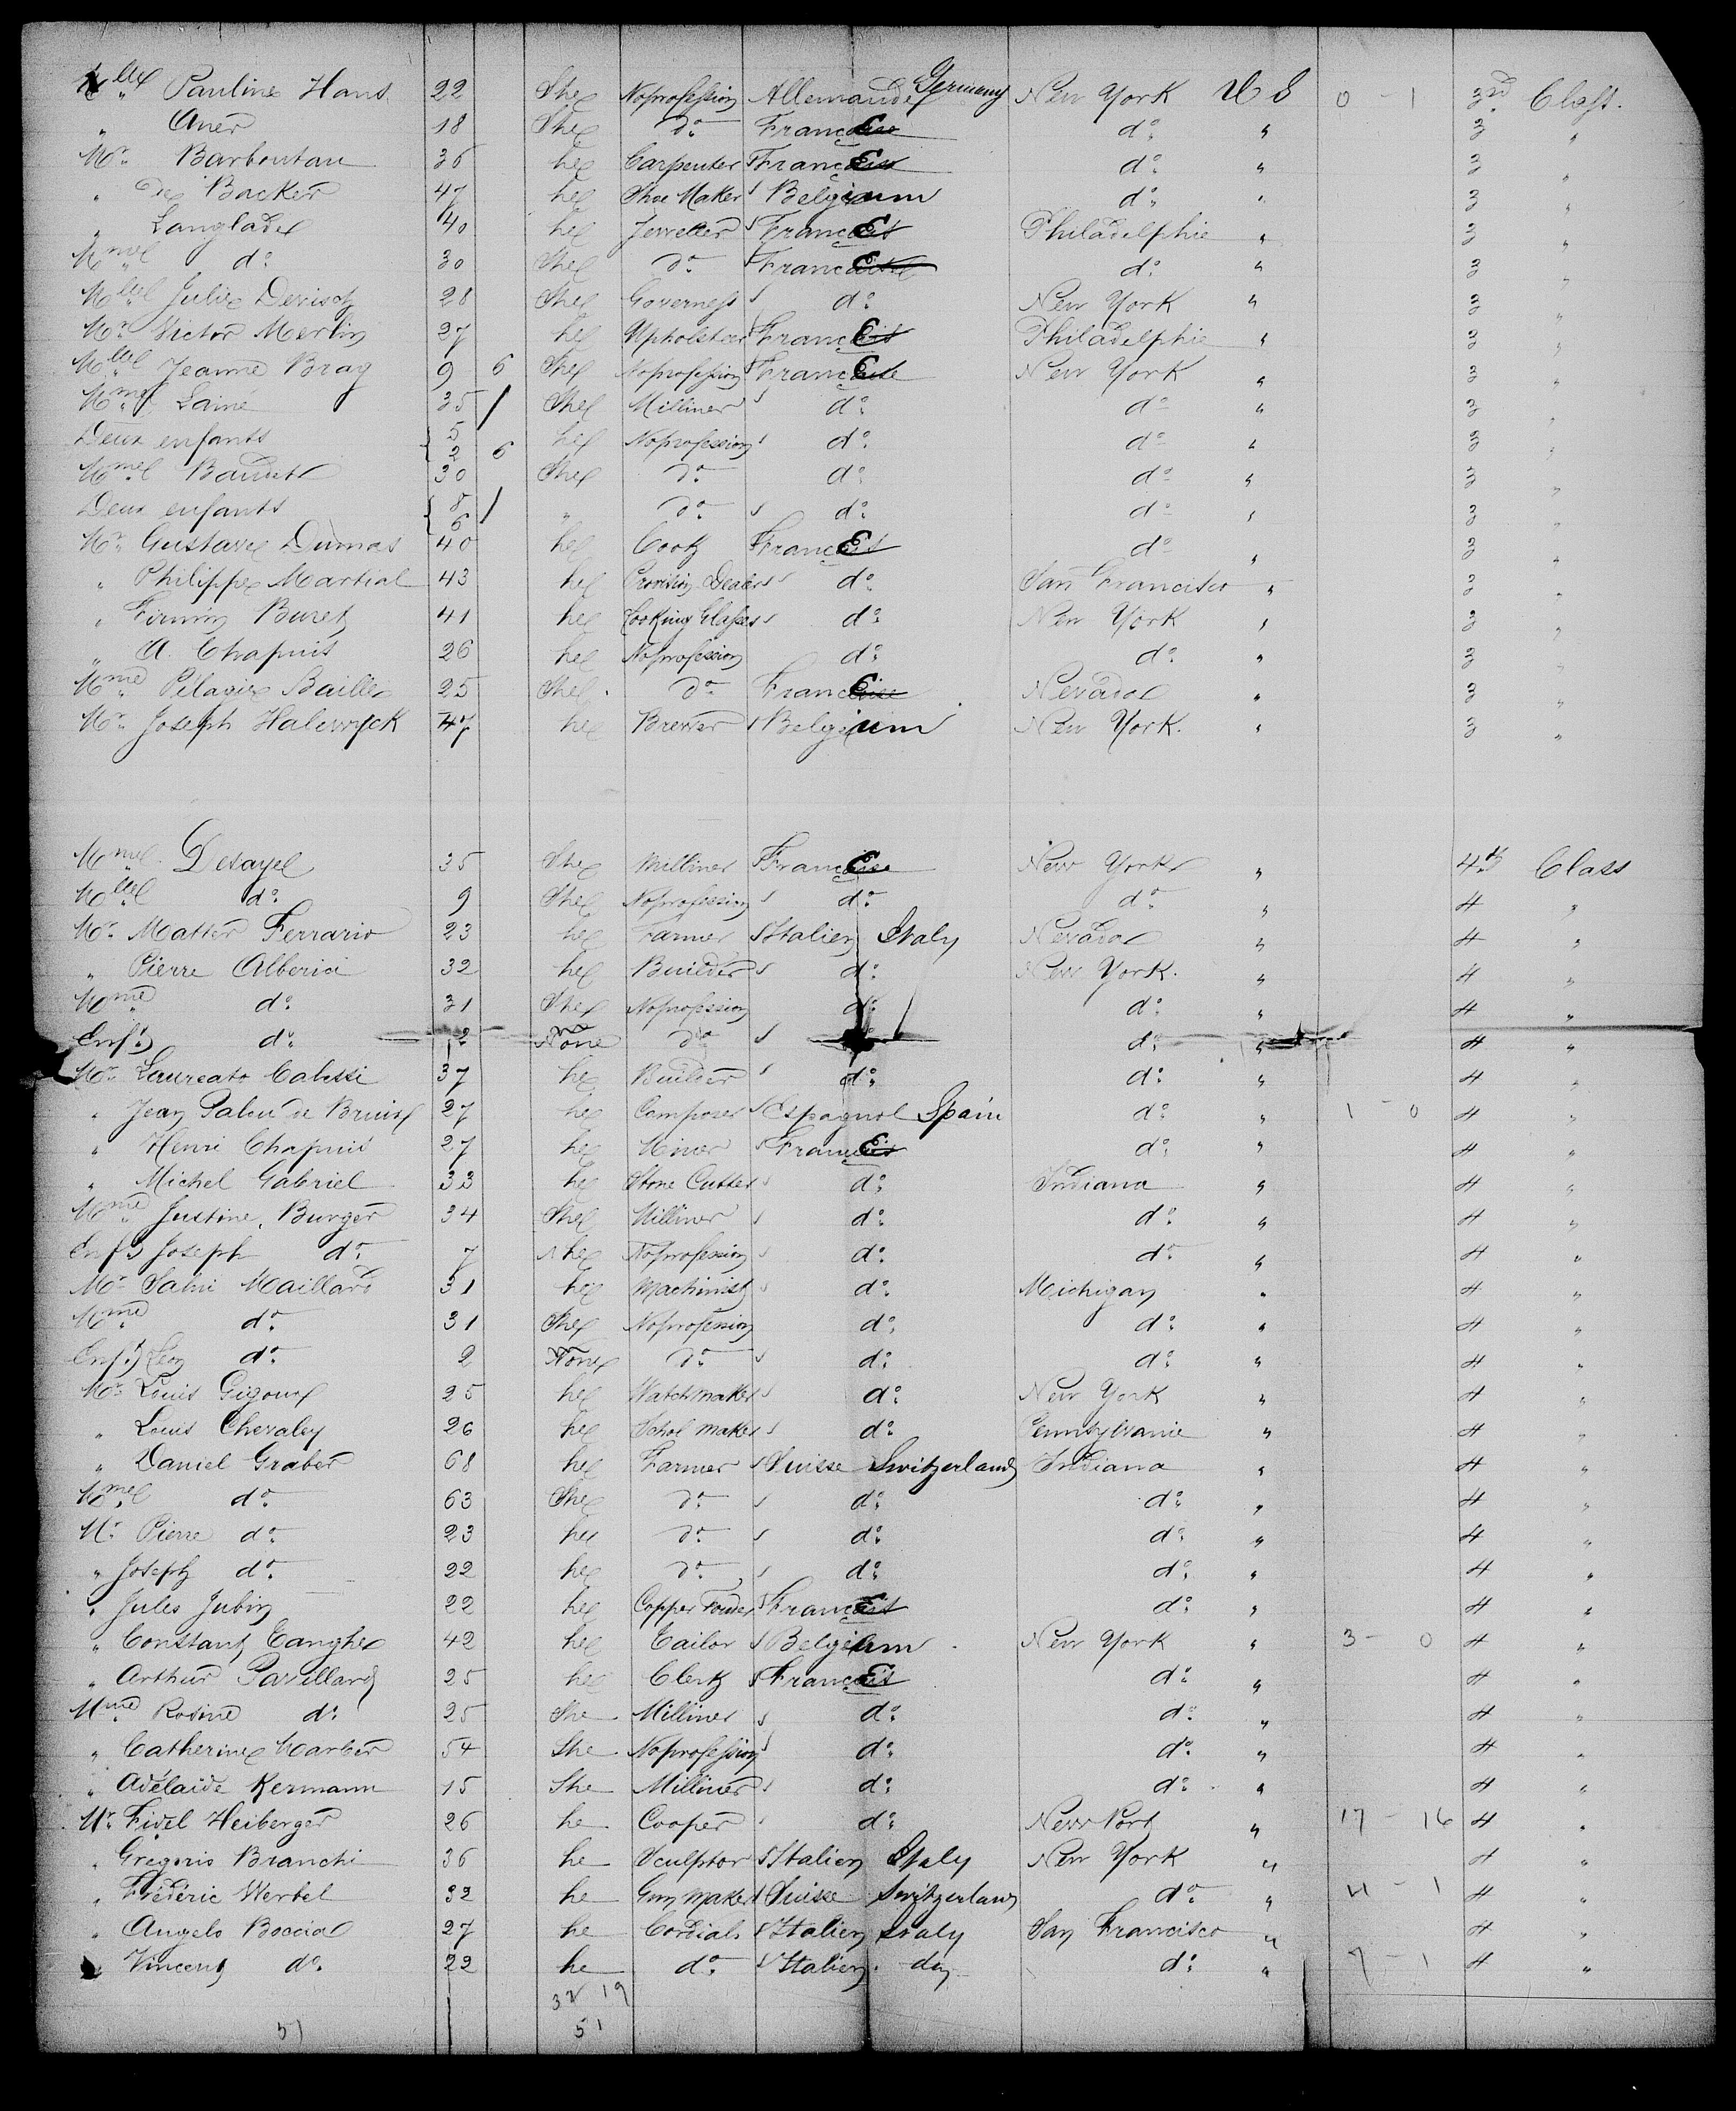 Mlle Pauline Hans 22 She No profession Allemande Germany New York U S 0 - 1 3rd Class.
" Aner 18 She do France do " 3 "
Mr Barboutau 36 he Carpenter France do " 3 "
" De Backer 47 he Shoe Maker Belgium do " 3 "
" Langlade 40 he Jeweller France Philadelphie " 3 "
Mme do 30 She do France do " 3 "
Mlle Julie 28 She Governess do New York " 3 "
Mr Victor Merlin 27 he Upholsterer France Philadelphie " 3 "
Mlle Jeanne Bray 9 6 She No profession France New York " 3 "
Mme Lainé 35 / She Milliner do do " 3 "
Deux enfants { 5 2 6 he No profession do do " 3 "
Mme Baudet 30 She do do do " 3 "
Deux enfants { 8 6 / " do do do " 3 "
Mr Gustave Dumas 40 he Cook France do " 3 "
" Philippe Martial 43 he Provision Dealer do San Francisco " 3 "
" Firmin Buret 41 he Looking Glasses do New York " 3 "
" A. Chapuis 26 he No profession do do " 3 "
Mme Baille 25 She do France Nevada " 3 "
Mr Joseph Halewyck 47 he Brewer Belgium New York. " 3 "
Mme Desaye 35 She Milliner France New York " 4th Class
Mlle do 9 She No profession do do " 4 "
Mr Matter Ferrario 23 he Farmer Italien Italy Nevada " 4 "
" Pierre Alberici 32 he Builder do New York. " 4 "
Mme do 31 She No profession do do " 4 "
Enft do 2 None do do " 4 "
Mr Laureato 37 he Builder do do " 4 "
" Jean 27 he Composer Espagnol Spain do " 1 - 0 4 "
" Henri Chapuis 27 he Miner France do " 4 "
" Michel Gabriel 33 he Stone Cutter do Indiana " 4 "
Mme Justine Burger 34 She Milliner do do " 4 "
Enft Joseph do 7 he No profession do do " 4 "
Mr Maillard 31 he Machinist do Michigan " 4 "
Mme do 31 She No profession do do " 4 "
Enft Leon do 2 None do do do " 4 "
Mr Louis Gigoux 25 he Watchmaker do New York " 4 "
" Louis Chevaley 26 he maker do Pennsylvanie " 4 "
" Daniel Graber 68 he Farmer Suisse Switzerland Indiana " 4 "
Mme do 63 She do do do " 4 "
Mr Pierre do 23 he do do do " 4 "
" Joseph do 22 he do do do " 4 "
" Jules Jubin 22 he Copper Founder France do " 4 "
" Constant Canghe 42 he Tailor Belgium New York " 3 - 0 4 "
" Arthur Pavillard 25 he Clerk France do " 4 "
Mme Rosine do 25 She Milliner do do " 4 "
" Catherine 54 She No profession do do " 4 "
" Adélaide Kermann 15 She Milliner do do " 4 "
Mr Fidel Heiberger 26 he Cooper do New Port " 17 - 16 4 "
" Gregorio Branchi 36 he Sculptor Italien Italy New York " 4 "
" Frédéric Werbel 32 he Gun Maker Suisse Switzerland do " 11 - 1 4 "
" Angelo Boccia 27 he Cordial Italien Italy San Francisco " 4 "
" Vincent do 22 he do Italien do do " 7 - 1 4 "
32 19
51 51